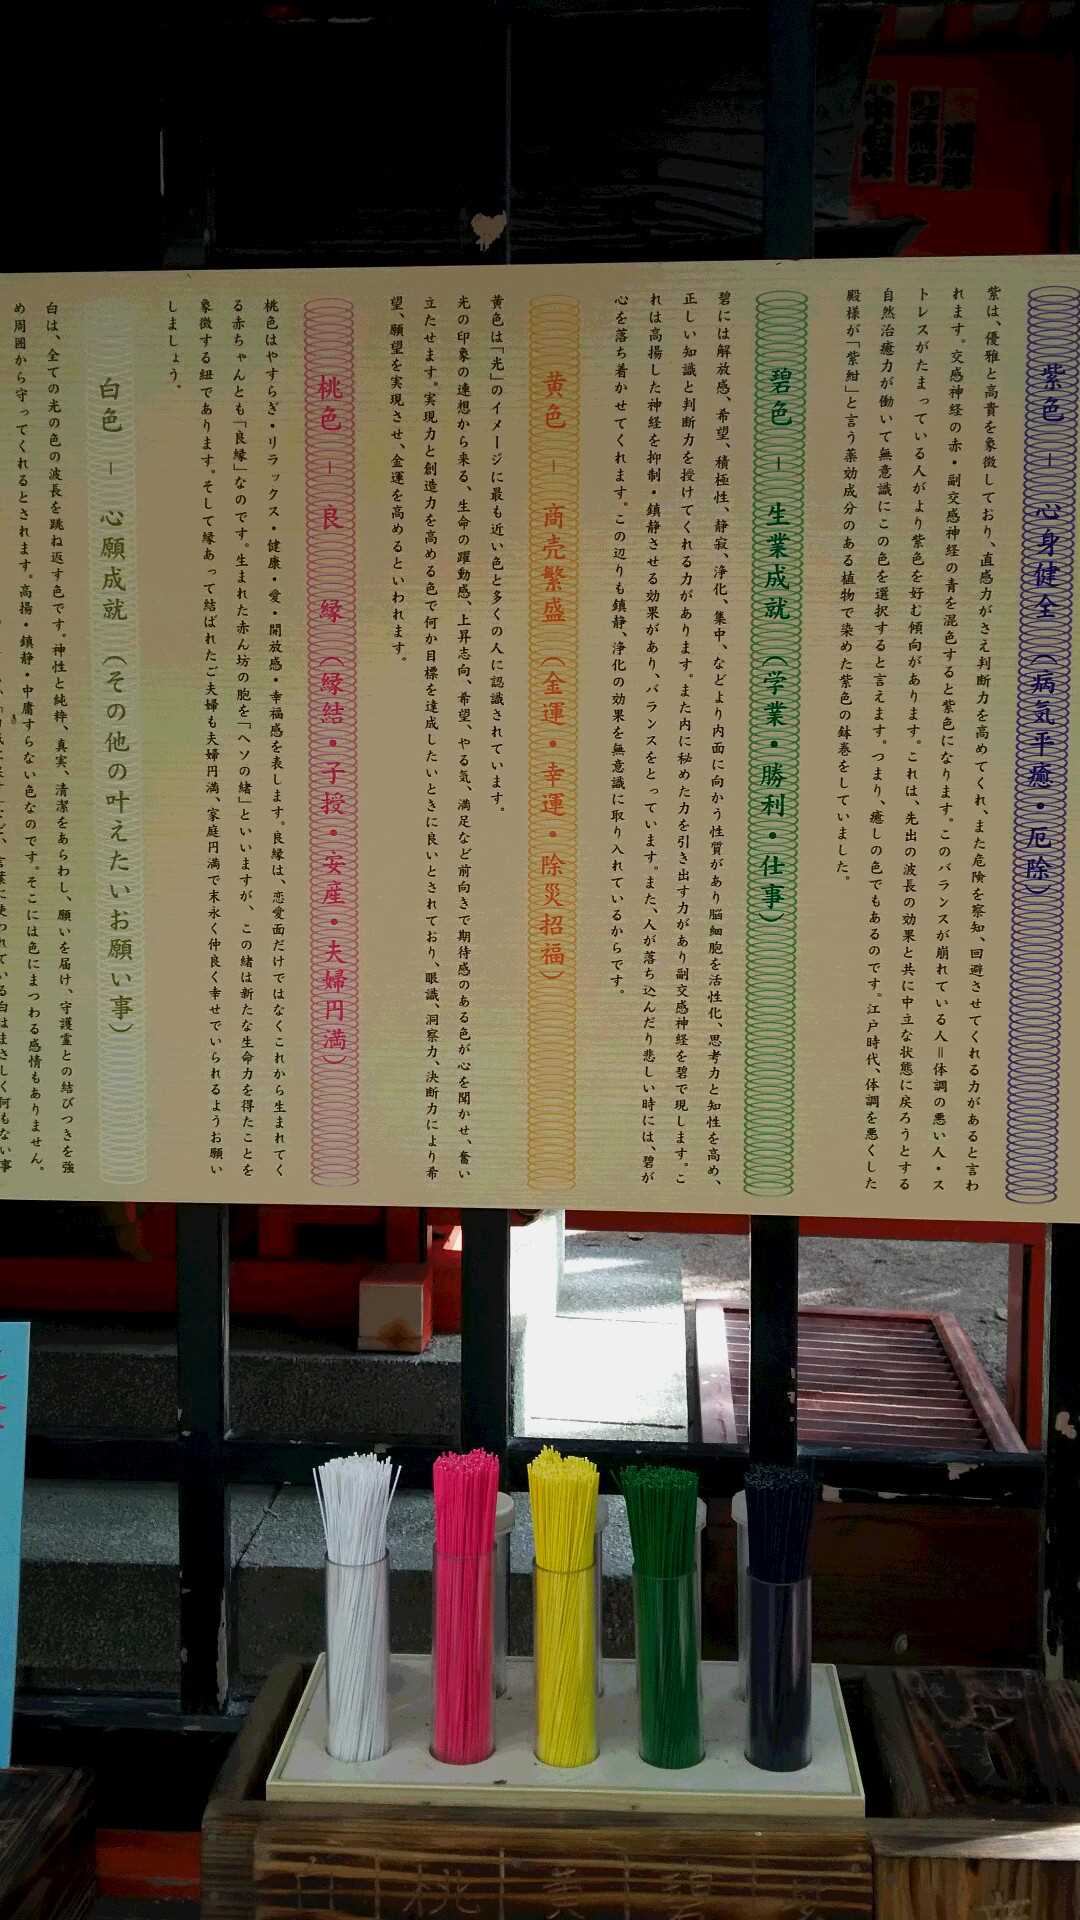 紫色 ー 心身健全(病気平癒・厄除)
紫は、優雅と高貴を象徴しており、直感力がさえ判断力を高めてくれ、また危険を察知、回避させてくれる力があると言わ
れます。交感神経の赤・副交感神経の青を混色すると紫色になります。このバランスが崩れている人=体調の悪い人・ス
トレスがたまっている人がより紫色を好む傾向があります。これは、先出の波長の効果と共に中立な状態に戻ろうとする
自然治癒力が働いて無意識にこの色を選択すると言えます。つまり、癒しの色でもあるのです。江戸時代、体調を悪くした
殿様が「紫紺」と言う薬効成分のある植物で染めた紫色の鉢巻をしていました。
碧色 ー 生業成就(学業・勝利・仕事)
碧には解放感、希望、積極性、静寂、浄化、集中、などより内面に向かう性質があり脳細胞を活性化、思考力と知性を高め、
正しい知識と判断力を授けてくれる力があります。また内に秘めた力を引き出す力があり副交感神経を碧で現します。こ
れは高揚した神経を抑制・鎮静させる効果があり、バランスをとっています。また、人が落ち込んだり悲しい時には、碧が
心を落ち着かせてくれます。この辺りも鎮静、浄化の効果を無意識に取り入れているからです。
黄色 ー 商売繁盛(金運・幸運・除災招福)
黄色は「光」のイメージに最も近い色と多くの人に認識されています。
光の印象の連想から来る、生命の躍動感、上昇志向、希望、やる気、満足など前向きで期待感のある色が心を開かせ、奮い
立たせます。実現力と創造力を高める色で何か目標を達成したいときに良いとされており、眼識、洞察力、決断力により希
望、願望を実現させ、金運を高めるといわれます。
桃色 ー 良 縁(縁結・子授・安産・夫婦円満)
桃色はやすらぎ・リラックス・健康・愛・開放感・幸福感を表します。良縁は、恋愛面だけではなくこれから生まれてく
る赤ちゃんとも「良縁」なのです。生まれた赤ん坊の胞を「ヘソの緒」といいますが、この緒は新たな生命力を得たことを
象徴する紐であります。そして縁あって結ばれたご夫婦も夫婦円満、家庭円満で末永く仲良く幸せでいられるようお願い
しましょう。
白色 ー 心願成就(その他の叶えたいお願い事)
白は、全ての光の色の波長を跳ね返す色です。神性と純粋、真実、清潔をあらわし、願いを届け、守護霊との結びつきを強
め周囲から守ってくれるとされます。高揚・鎮静・中庸すらない色なのです。そこには色にまつわる感情もありません。
白 桃 黄 碧